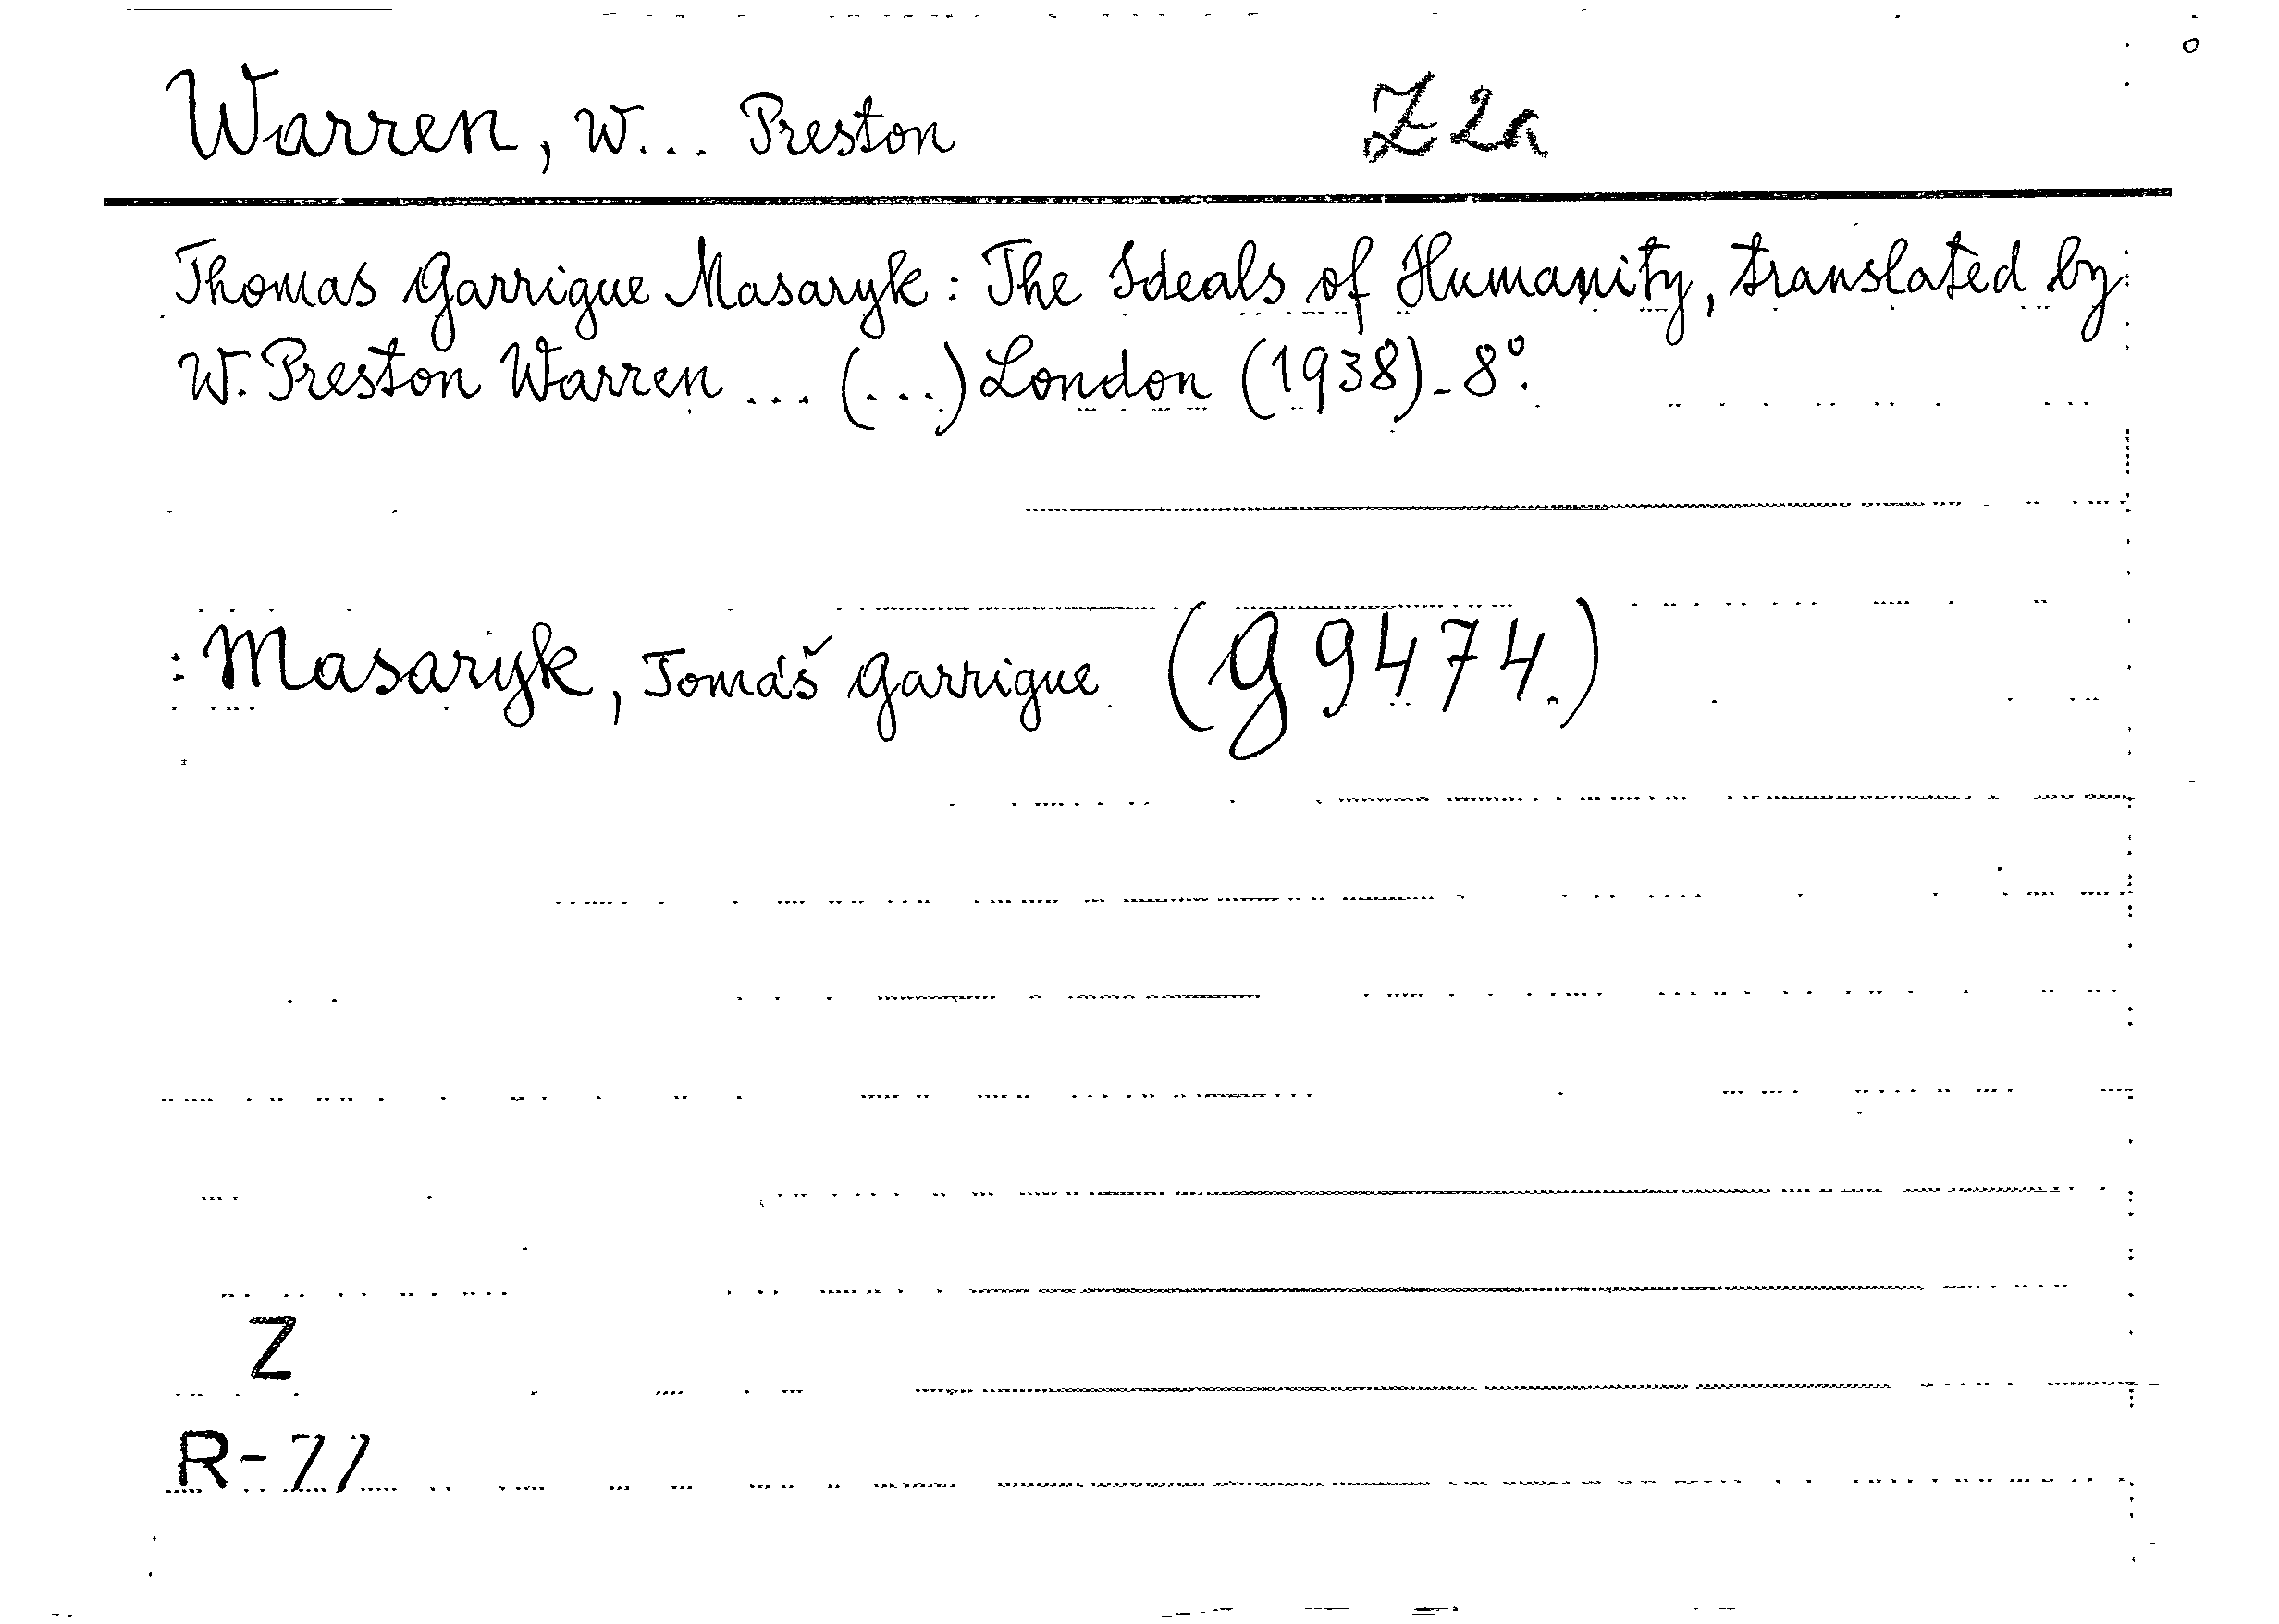 Warren, W... Preston Z2a
Thomas Garrigue Masaryk: The Ideals of Humanity, translated by
W. Preston Warren ... (...) London (1938)_8°.
: Masaryk, Tomáš Garrigue (G 9474.)
Z
R-77